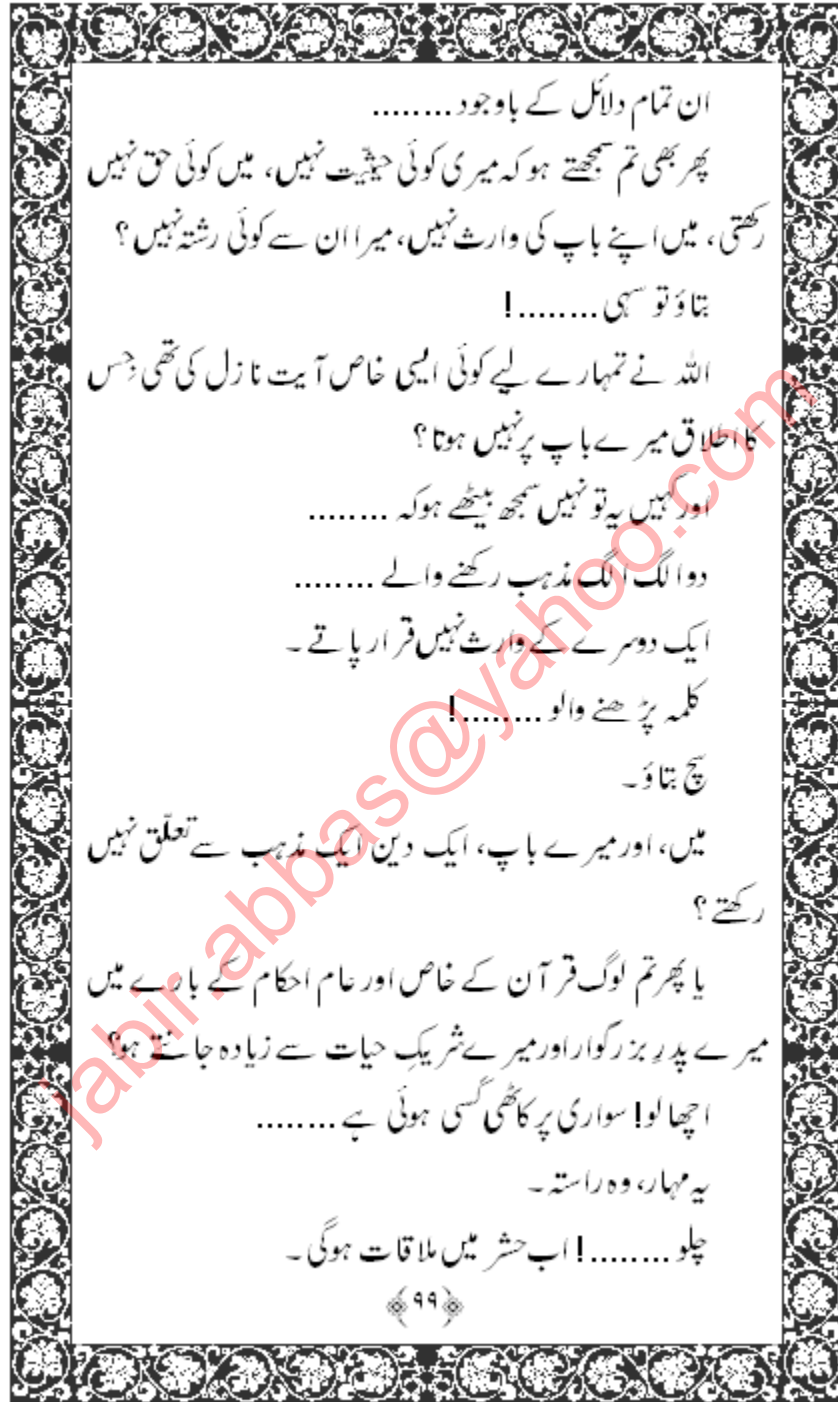 ان تمام دلائل کے باوجود ........
پھر بھی تم سمجھتے ہو کہ میری کوئی حیثیّت نہیں، میں کوئی حق نہیں
رکھتی، میں اپنے باپ کی وارث نہیں، میرا ان سے کوئی رشتہ نہیں؟
بتاؤ تو سہی ........!
اللہ نے تمہارے لیے کوئی ایسی خاص آیت نازل کی تھی جِس
کا اطلاق میرے باپ پر نہیں ہوتا؟
اور کہیں یہ تو نہیں سمجھ بیٹھے ہو کہ ........
دو الگ الگ مذہب رکھنے والے ........
ایک دوسرے کے وارث نہیں قرار پاتے۔
کلمہ پڑھنے والو ........!
سچ بتاؤ۔
میں، اور میرے باپ، ایک دین ایک مذہب سے تعلّق نہیں
رکھتے؟
یا پھر تم لوگ قرآن کے خاص اور عام احکام کے بارے میں
میرے پدرِ بزرگوار اور میرے شریکِ حیات سے زیادہ جانتے ہو؟
اچھا لو! سواری پر کاٹھی کَسی ہوئی ہے ........
یہ مہار، وہ راستہ۔
چلو ........! اب حشر میں ملاقات ہوگی۔
﴿۹۹﴾
jabir.abbas@yahoo.com